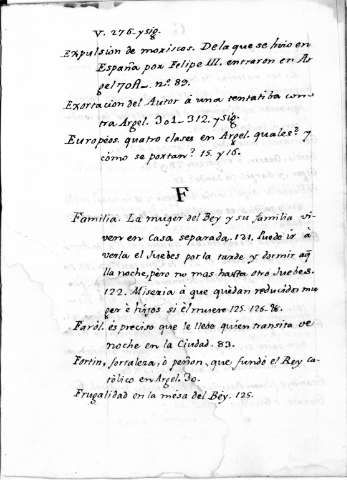 V. 276. y sig.
Expulsion de moriscos. De la que se hizo en
España por Felipe III. entraron en Ar
gel 70A_ n.º 89.
Exortacion del Autor à una tentatiba con
tra Argel. 301_312. y sig.
Européos. quatro clases en Argel. quales? y
cómo se portan? 15. y 16.
F
Familia. La muger del Bey y su familia vi-
ven en Casa separada. 121. Puede ir à
verla el Juebes por la tarde y dormir aq
lla noche, pèro no mas hasta otro Juebes.
122. Miseria à que quedan reducidos mu
ger è hijos si èl muere 125. 126. &.
Faról. és preciso que le llebe quien transita de
noche en la Ciudad. 83.
Fortin, fortaleza, ò peñon, que fundó el Rey Ca-
tólico en Argel. 30.
Frugalidad en la mesa del Bèy. 125.